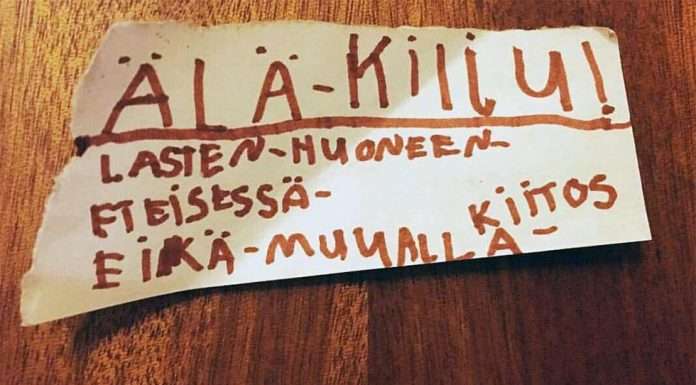 ÄLÄ-KiljU!
LASTEN-HUONEEN-
ETEiSESSÄ-
EiKÄ-MUUALLA-KiiTOS